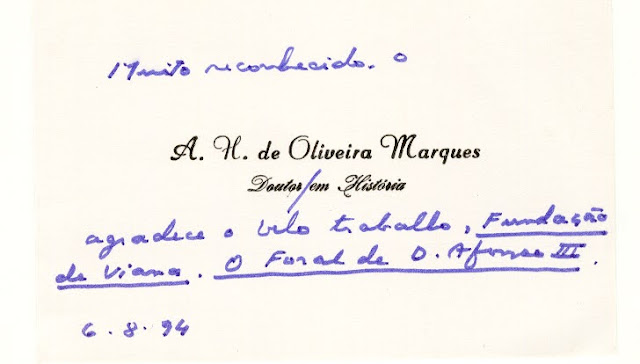 Muito reconhecido. o
A. H. de Oliveira Marques
Doutor em História
agradece o belo trabalho, Fundação
de Viana. O Foral de D. Afonso III.
6.8.94